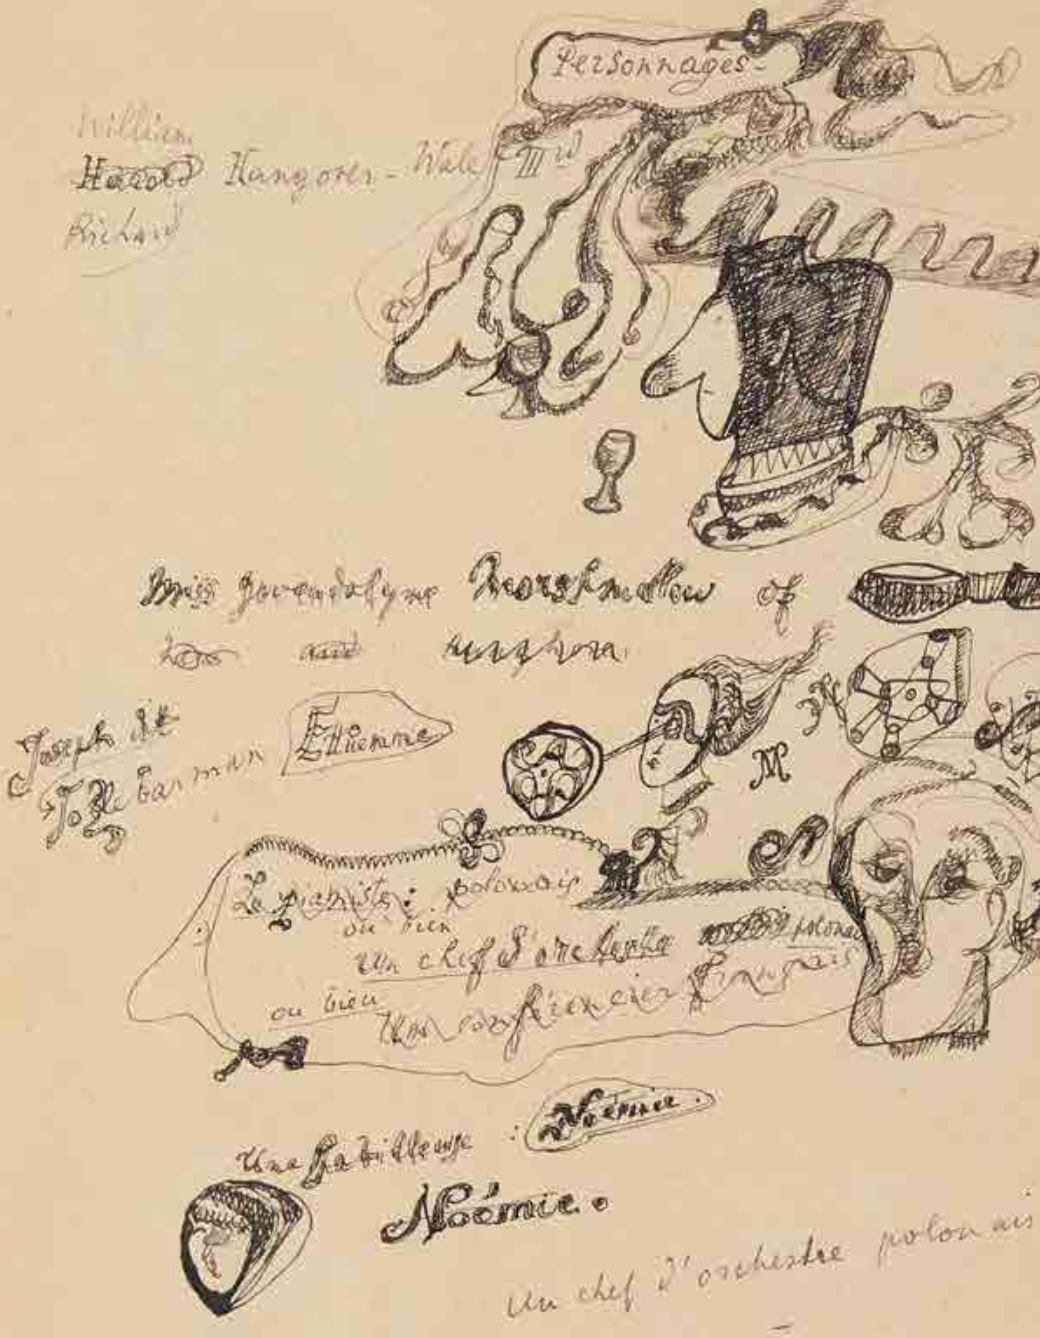 Personnages -
William
Harold Hangover - Wale IIIrd
Richard
Miss Gwendolyne Marshmallow of
and
Joseph dit
Jo le barman Etienne
M
Le pianiste : polonais
ou bien
un chef d'orchestre polonais
ou bien
Un conférencier français
Une habilleuse : Noémie.
Noémie.
Un chef d'orchestre polonais